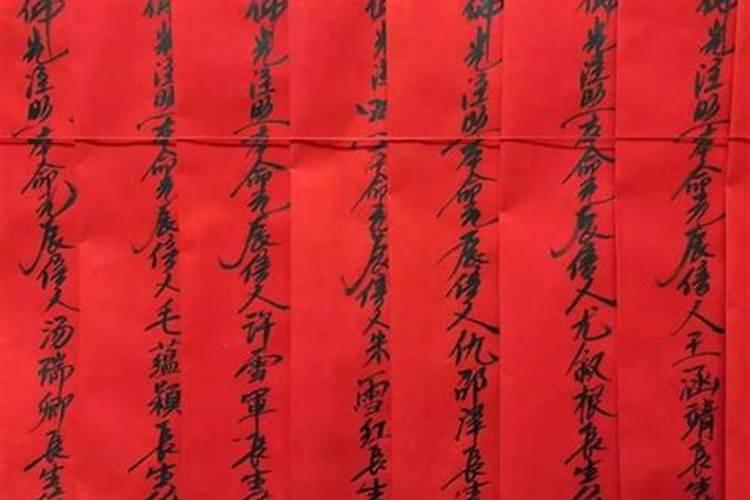 佛光注照本命元辰信人王涵靖長生
佛光注照本命元辰信人尤叙根長生
佛光注照本命元辰信人仇邵澤長生
佛光注照本命元辰信人朱雪紅長生
佛光注照本命元辰信人許雪軍長生
佛光注照本命元辰信人毛蘊穎長生
佛光注照本命元辰信人汤瑞卿長生